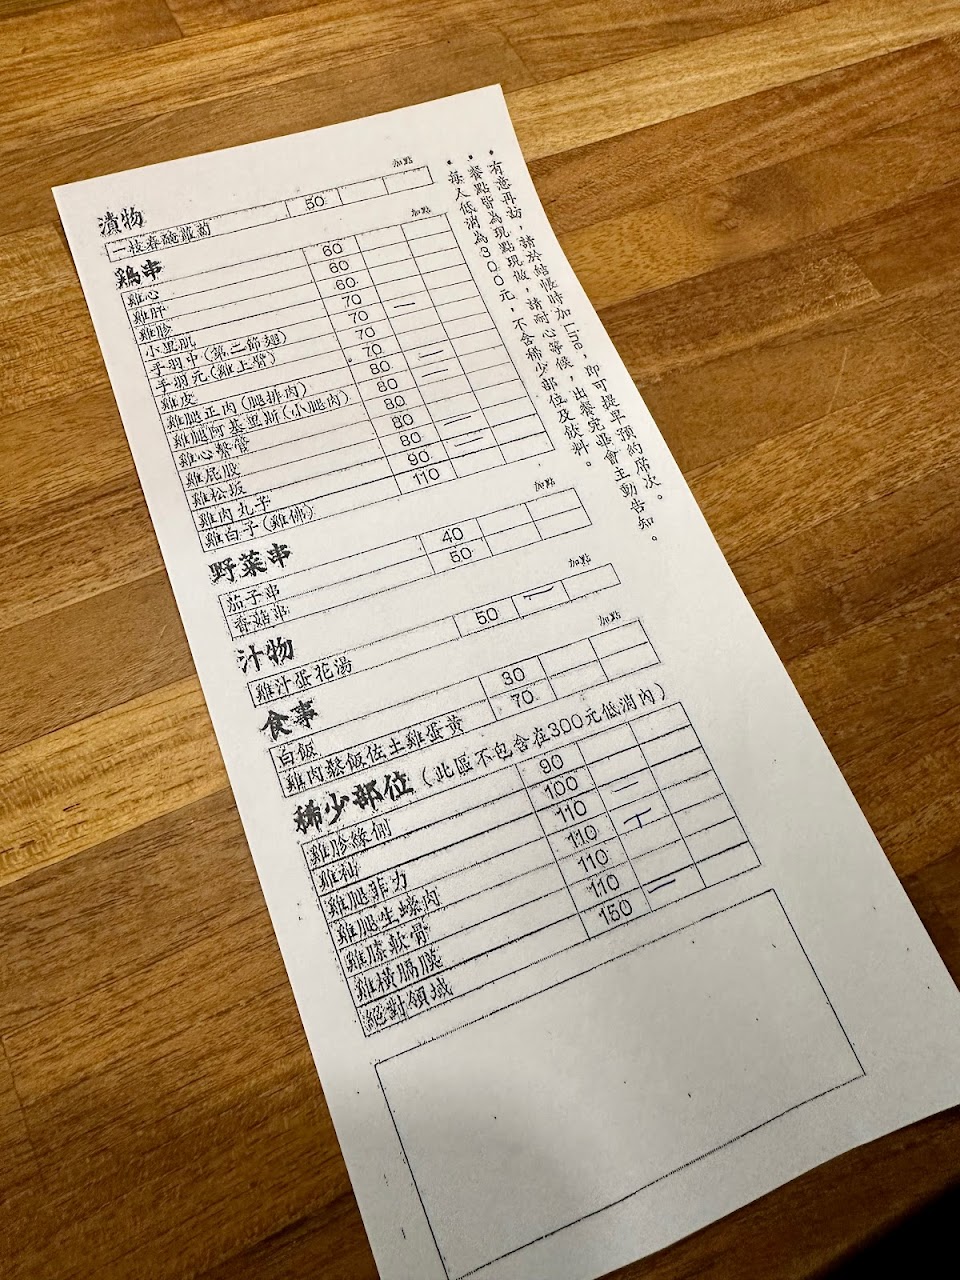 漬物 加點
一枝春醃蘿蔔 50
鶏串 加點
雞心 60
雞肝 60
雞胗 60
小里肌 70
手羽中(第二節翅) 70 一
手羽元(雞上臂) 70
雞皮 70
雞腿正肉(腿排肉) 80 二
雞腿阿基里斯(小腿肉) 80 二
雞心聲管 80
雞屁股 80
雞松坂 80 二
雞肉丸子 90 二
雞白子(雞佛) 110
野菜串 加點
茄子串 40
香菇串 50
汁物 加點
雞汁蛋花湯 50 丅
食事 加點
白飯 30
雞肉鬆飯佐土雞蛋黃 70
稀少部位(此區不包含在300元低消內)
雞胗緣側 90
雞衽 100
雞腿菲力 110 二
雞腿生蠔肉 110 丅
雞膝軟骨 110
雞橫膈膜 110
絕對領域 150 二
•有意再訪,請於結帳時加Line,即可提早預約席次。
•餐點皆為現點現做,請耐心等候,出餐完畢會主動告知。
•每人低消為300元,不含稀少部位及飲料。